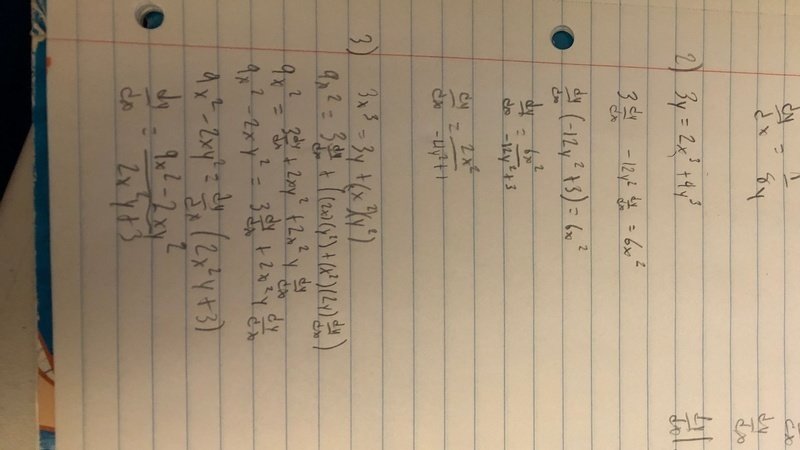 dy/dx = /8y
2) 3y = 2x³ + 4y³
3 dy/dx - 12y² dy/dx = 6x²
dy/dx (-12y² + 3) = 6x²
dy/dx = 6x²/-12y²+3
dy/dx = 2x²/-4y²+1
3) 3x³ = 3y + (x²)(y²)
9x² = 3 dy/dx + ((2x)(y²) + (x²)(2y) dy/dx)
9x² = 3 dy/dx + 2xy² + 2x²y dy/dx
9x² - 2xy² = 3 dy/dx + 2x²y dy/dx
9x² - 2xy² = dy/dx (2x²y + 3)
dy/dx = 9x² - 2xy²/2x²y+3
dy/dx
dy/dx